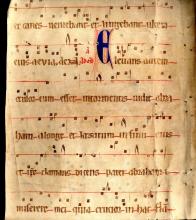 et canes veniebant et lingebant ulcera
eius aevia Elevans autem
oculos cum esset in tormentis vidit abra
ham a longe et lazarum in sinu eius
et ipse clamans dicens pater abraham
miserere mei quia crucior in hac fla